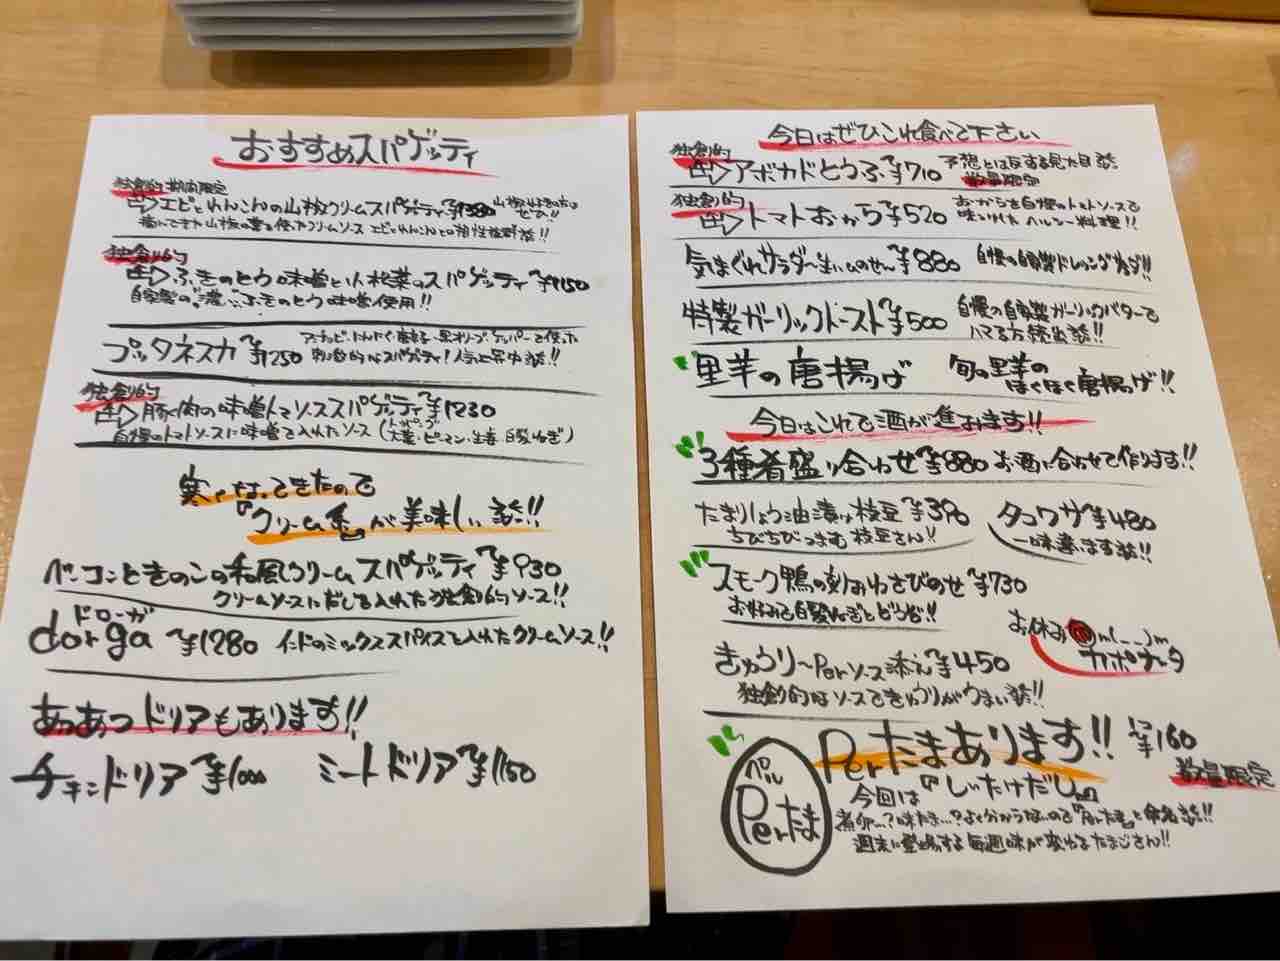 おすすめスパゲッティ
独創的 期間限定
エビとれんこんの山椒クリームスパゲッティ 山椒好きの方はぜひ!!
独創的
ふきのとう味噌と小松菜のスパゲッティ ¥1150
自家製の"濃い"ふきのとう味噌使用!!
プッタネスカ ¥1250
アンチョビ・にんにく・唐辛子・黒オリーブ・ケッパーで作った
刺激的なスパゲティ!人気上昇中です!!
独創的
豚肉の味噌トマトソーススパゲッティ ¥1230
自慢のトマトソースに味噌を入れたソース(トッピング 大葉・ピーマン・生姜・白髪ねぎ)
寒くなってきたので
『クリーム系』が美味しいです!!
ベーコンときのこの和風クリームスパゲッティ ¥930
クリームソースにだしを入れた独創的ソース!!
ドローガ
dorga ¥1280 インドのミックススパイスを入れたクリームソース!!
あつあつドリアもあります!!
チキンドリア ¥1000 ミートドリア ¥1150
今日はぜひこれ食べて下さい
独創的
アボカドとうふ ¥710 予想とは反する見た目です
数量限定
独創的
トマトおから ¥520 おからを自慢のトマトソースで
味つけした ヘルシー料理!!
気まぐれサラダ〜生ハムのせ〜 ¥880 自慢の自家製ドレッシングで!!
特製ガーリックトースト ¥500 自慢の自家製ガーリックバターで
ハマる方続出です!!
里芋の唐揚げ 旬の里芋の
ほくほく唐揚げ!!
今日はこれで酒が進みます!!
3種肴盛り合わせ ¥880 お酒に合わせて作ります!!
たまりしょう油漬け枝豆 ¥390
ちびちびつまむ枝豆さん!!
タコワサ ¥480
一味違います!!
スモーク鴨の刻みわさびのせ ¥730
お好みで白髪ねぎとどうぞ!!
お休み m(__)m
カポナータ
きゅうり〜Perソース添え ¥450
独創的なソースできゅうりがうまいです!!
Perたまあります!! ¥160
数量限定
ペル
Perたま
今回は『しいたけだし』
煮卵…?味たま…?よく分からないので『Perたま』と命名です!!
週末に登場する毎週味が変わるたまごさん!!